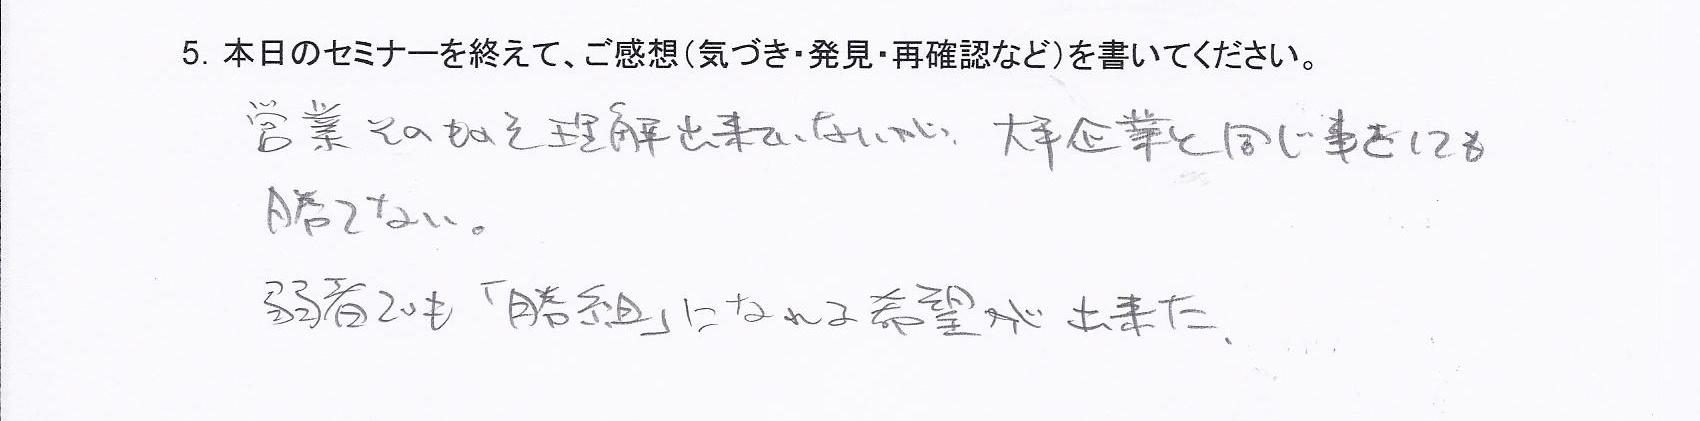 5. 本日のセミナーを終えて、ご感想(気づき・発見・再確認など)を書いてください。
営業そのものを理解出来ていないが、大手企業と同じ事をしても
勝てない。
弱者でも「勝組」になれる希望が出来た、